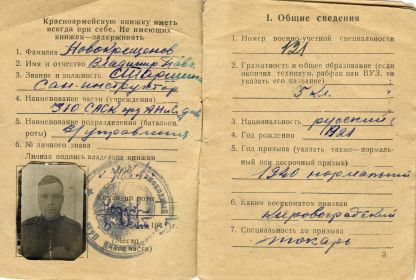 Красноармейскую книжку иметь
всегда при себе. Не имеющих
книжек—задерживать
1. Фамилия Новокрещенов
2. Имя и отчество Владимир
3. Звание и должность Старшина
Сан-инструктор
4. Наименование части (учреждения)
5. Наименование подразделения (батальон,
роты) Управления
6. № личного знака
Личная подпись владельца книжки
Командир роты
(Место
печати части)
I. Общие сведения
1. Номер военно-учетной специальности
121
2. Грамотность и общее образование (если
окончил техникум, рабфак или ВУЗ, то
указать его название)
5 кл.
3. Национальность русский
4. Год рождения 1921
5. Год призыва (указать также—нормаль-
ный или досрочный призыв)
1940 нормальный
6. Каким военкоматом призван
Кировоградский
7. Специальность до призыва
токарь
3